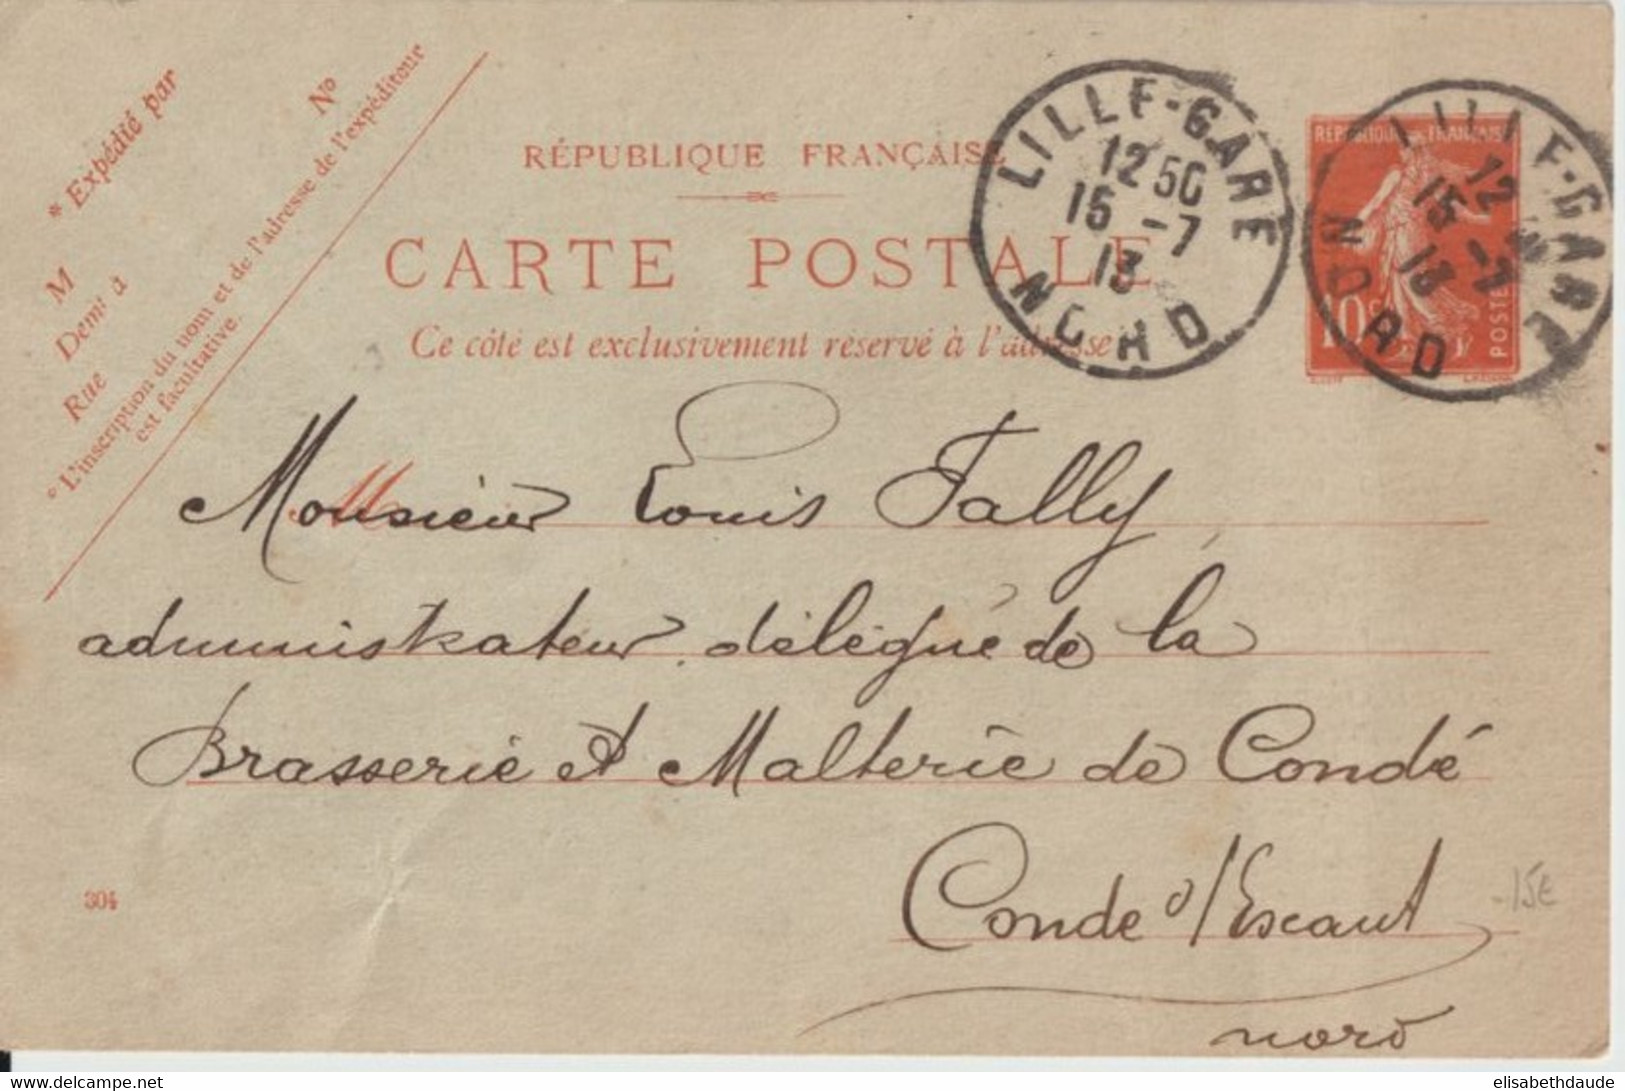 * Expédié par
N°
M
Demt à
Rue
° L'inscription du nom et de l'adresse de l'expéditeur
est facultative.
RÉPUBLIQUE FRANÇAISE
CARTE POSTALE
Ce côté est exclusivement réservé à l'adresse
LILLE-GARE
12 50
15 -7
13
NORD
LILLE-GARE
12
15 -7
13
NORD
RÉPUBLIQUE FRANÇAISE
10c
POSTES
M
Monsieur Louis Tally,
administrateur délégué de la
Brasserie et Malterie de Condé
Conde s/Escaut
nord
304
15€
elisabethdaude